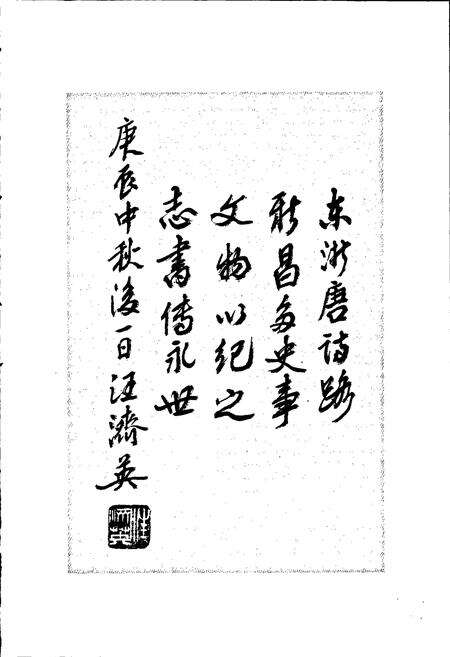 东浙唐诗路
新昌多史事
文物以纪之
志书传永世
庚辰中秋后一日汪济英
汪济英